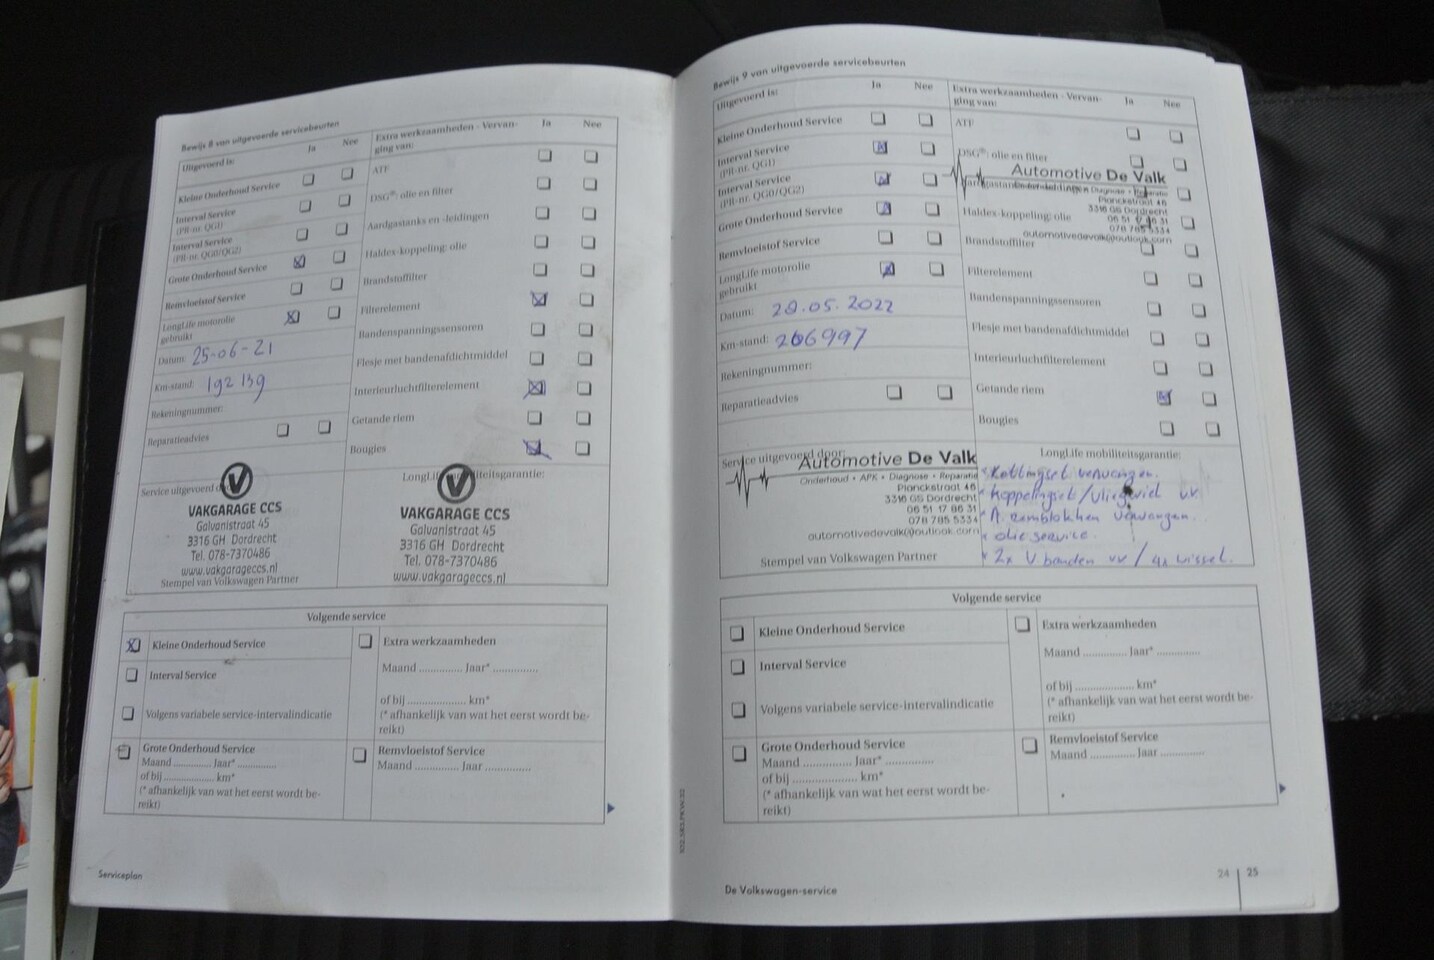 Bewijs 8 van uitgevoerde servicebeurten
Uitgevoerd is:
Ja
Nee
Kleine Onderhoud Service
Interval Service
(PR-nr. QG1)
Interval Service
(PR-nr. QG0/QG2)
Grote Onderhoud Service
Remvloeistof Service
LongLife motorolie
gebruikt
Datum: 25-06-21
Km-stand: 192 139
Rekeningnummer:
Reparatieadvies
Extra werkzaamheden - Vervan-
ging van:
Ja
Nee
ATF
DSG®: olie en filter
Aardgastanks en -leidingen
Haldex-koppeling: olie
Brandstoffilter
Filterelement
Bandenspanningssensoren
Flesje met bandenafdichtmiddel
Interieurluchtfilterelement
Getande riem
Bougies
Service uitgevoerd
VAKGARAGE CCS
Galvanistraat 45
3316 GH Dordrecht
Tel. 078-7370486
www.vakgarageccs.nl
Stempel van Volkswagen Partner
LongLife mobiliteitsgarantie:
VAKGARAGE CCS
Galvanistraat 45
3316 GH Dordrecht
Tel. 078-7370486
www.vakgarageccs.nl
Volgende service
Kleine Onderhoud Service
Interval Service
Volgens variabele service-intervalindicatie
Grote Onderhoud Service
Maand ............ Jaar* ............
of bij ................ km*
(* afhankelijk van wat het eerst wordt be-
reikt)
Extra werkzaamheden
Maand .............. Jaar* ..............
of bij .................. km*
(* afhankelijk van wat het eerst wordt be-
reikt)
Remvloeistof Service
Maand .............. Jaar ..............
Serviceplan
Bewijs 9 van uitgevoerde servicebeurten
Uitgevoerd is:
Ja
Nee
Kleine Onderhoud Service
Interval Service
(PR-nr. QG1)
Interval Service
(PR-nr. QG0/QG2)
Grote Onderhoud Service
Remvloeistof Service
LongLife motorolie
gebruikt
Datum: 20.05.2022
Km-stand: 206997
Rekeningnummer:
Reparatieadvies
Extra werkzaamheden - Vervan-
ging van:
Ja
Nee
ATF
DSG®: olie en filter
Automotive De Valk
Planckstraat 46
3316 GS Dordrecht
078 785 5334
automotivedevalk@outlook.com
Haldex-koppeling: olie
Brandstoffilter
Filterelement
Bandenspanningssensoren
Flesje met bandenafdichtmiddel
Interieurluchtfilterelement
Getande riem
Bougies
Service uitgevoerd door:
Automotive De Valk
Onderhoud • APK • Diagnose • Reparatie
Planckstraat 46
3316 GS Dordrecht
06 51 17 86 31
078 785 5334
automotivedevalk@outlook.com
Stempel van Volkswagen Partner
LongLife mobiliteitsgarantie:
* Kettingset vervangen.
* Koppelingset/vliegwiel vv
* A. remblokken vervangen.
* olie service.
* 2x V banden vv / 4x wissel.
Volgende service
Kleine Onderhoud Service
Interval Service
Volgens variabele service-intervalindicatie
Grote Onderhoud Service
Maand .............. Jaar* ..............
of bij .................. km*
(* afhankelijk van wat het eerst wordt be-
reikt)
Extra werkzaamheden
Maand ............ Jaar* ............
of bij .................. km*
(* afhankelijk van wat het eerst wordt be-
reikt)
Remvloeistof Service
Maand ............ Jaar ............
De Volkswagen-service
24 | 25